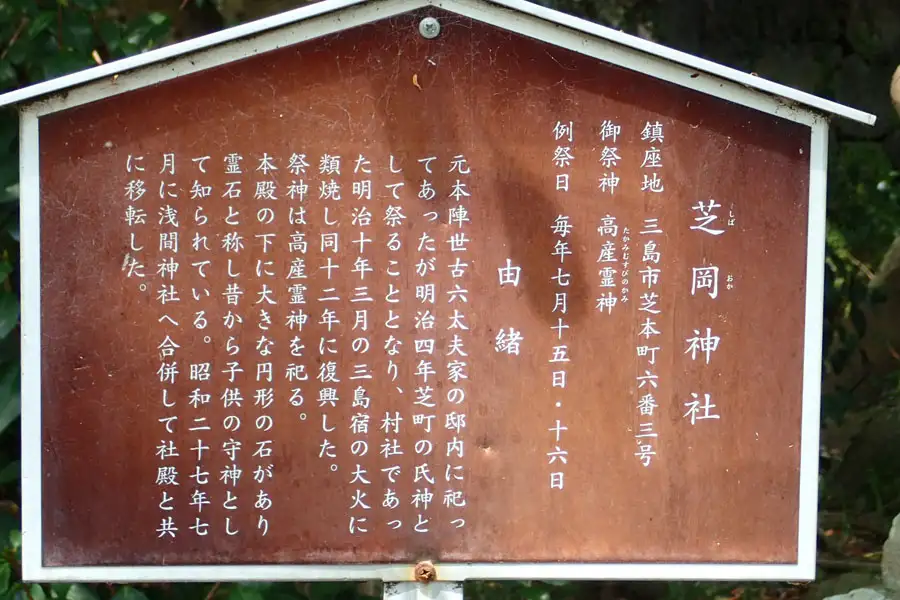 芝岡神社
しば
おか
鎮座地 三島市芝本町六番三号
御祭神 高産霊神
たかみむすびのかみ
例祭日 毎年七月十五日・十六日
由緒
元本陣世古六太夫家の邸内に祀っ
てあったが明治四年芝町の氏神と
して祭ることとなり、村社であっ
た明治十年三月の三島宿の大火に
類焼し同十二年に復興した。
祭神は高産霊神を祀る。
本殿の下に大きな円形の石があり
霊石と称し昔から子供の守神とし
て知られている。昭和二十七年七
月に浅間神社へ合併して社殿と共
に移転した。